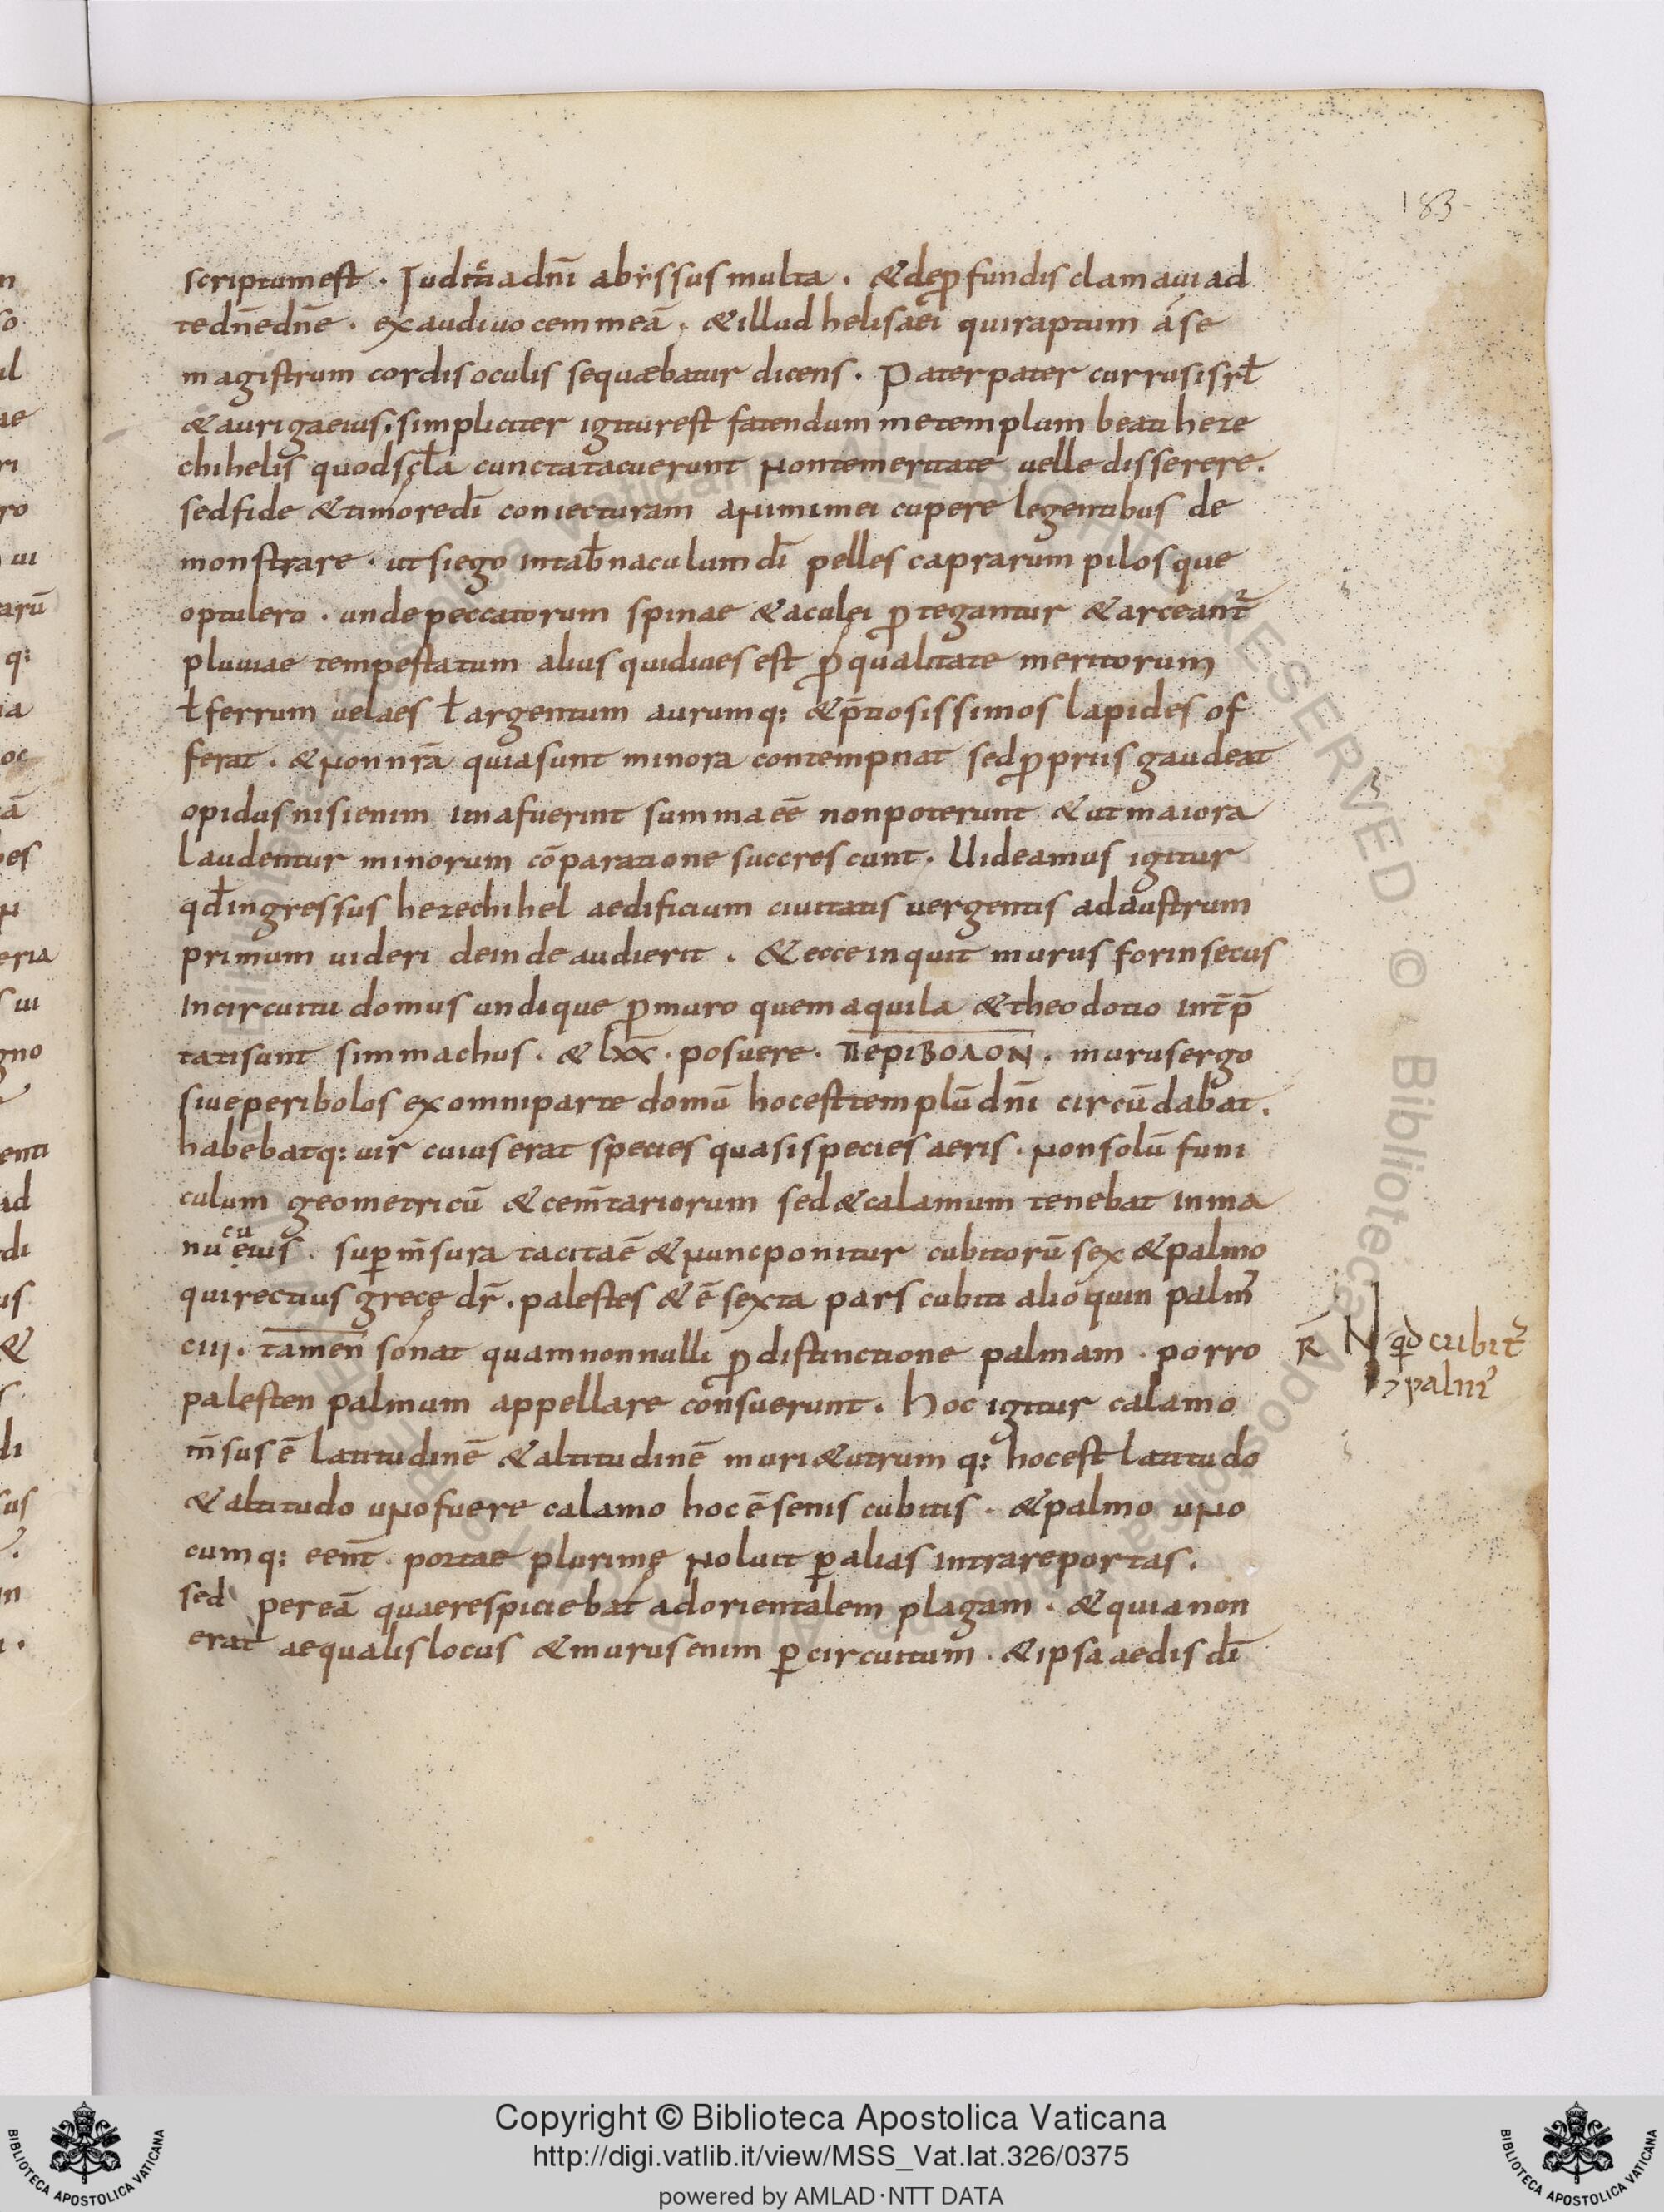 183
scriptum est · Iuditia dñi abyssus multa · & de ꝓfundis clamaui ad
te dñe dñe · exaudi uocem meā · & illud helisaei qui raptum á se
magistrum cordis oculis sequæbatur dicens · Pater pater currus isrł
& auriga eius · simpliciter igitur est fatendum me templum beati heze
chihelis quod scła cuncta tacuerunt non temeritate uelle disserere ·
sed fide & timore dī coniecturam animi mei cupere legentibus de
monstrare · ut si ego in tab̄naculum dī pelles caprarum pilosque
optulero · unde peccatorum spinae & aculei ꝓtegantur & arceant᷒
pluuiae tempestatum alius qui diues est ꝓ qualitate meritorum
ł ferrum uel aes ł argentum aurumq: & p̄tiosissimos lapides of
ferat · & non nr̄a quia sunt minora contempnat sed ꝓpriis gaudeat
opidus nisi enim ima fuerint summa eē non poterunt & ut maiora
laudentur minorum cōparatione succrescunt · Uideamus igitur
qđ ingressus hezechihel aedificium ciuitatis uergentis ad austrum
primum uideri deinde audierit · & ecce inquit murus forinsecus
in circuitu domus undique ꝓ muro quem aquila & theodotio int̄p̄
tati sunt simmachus · & lxx · posuere · ΠΕΡΙΒΟΛΟΝ · murus ergo
siue peribolos ex omni parte domū hoc est templū dñi circūdabat ·
habebatq: uir cuius erat species quasi species aeris · non solū funi
culum geometricū & cem̄tariorum sed & calamum tenebat in ma
nu eius · suꝑ m̄sura tacita ē & nunc ponitur cubitorū sex & palmo
cu
qui rectius grecę dr̄ · palestes & ē sexta pars cubiti alióquin palm̄
ciij · tamen sonat quam nonnulli ꝓ distinctione palmam · porro
R̄ N qđ cubit᷒
palm᷒
palesten palmum appellare consuerunt · Hoc igitur calamo
m̄sus ē latitudinē & altitudinē muri & utrumq: hoc est latitudo
& altitudo uno fuere calamo hoc ē senis cubitis · & palmo uno
cumq: eēnt · portae plurimę noluit ꝑ alias intrare portas ·
sed per eā quae respiciebat ad orientalem plagam · & quia non
erat aequalis locus & murus enim ꝑ circuitum · & ipsa aedis dī
Copyright © Biblioteca Apostolica Vaticana
http://digi.vatlib.it/view/MSS_Vat.lat.326/0375
powered by AMLAD·NTT DATA
BIBLIOTECA APOSTOLICA VATICANA
BIBLIOTECA APOSTOLICA VATICANA